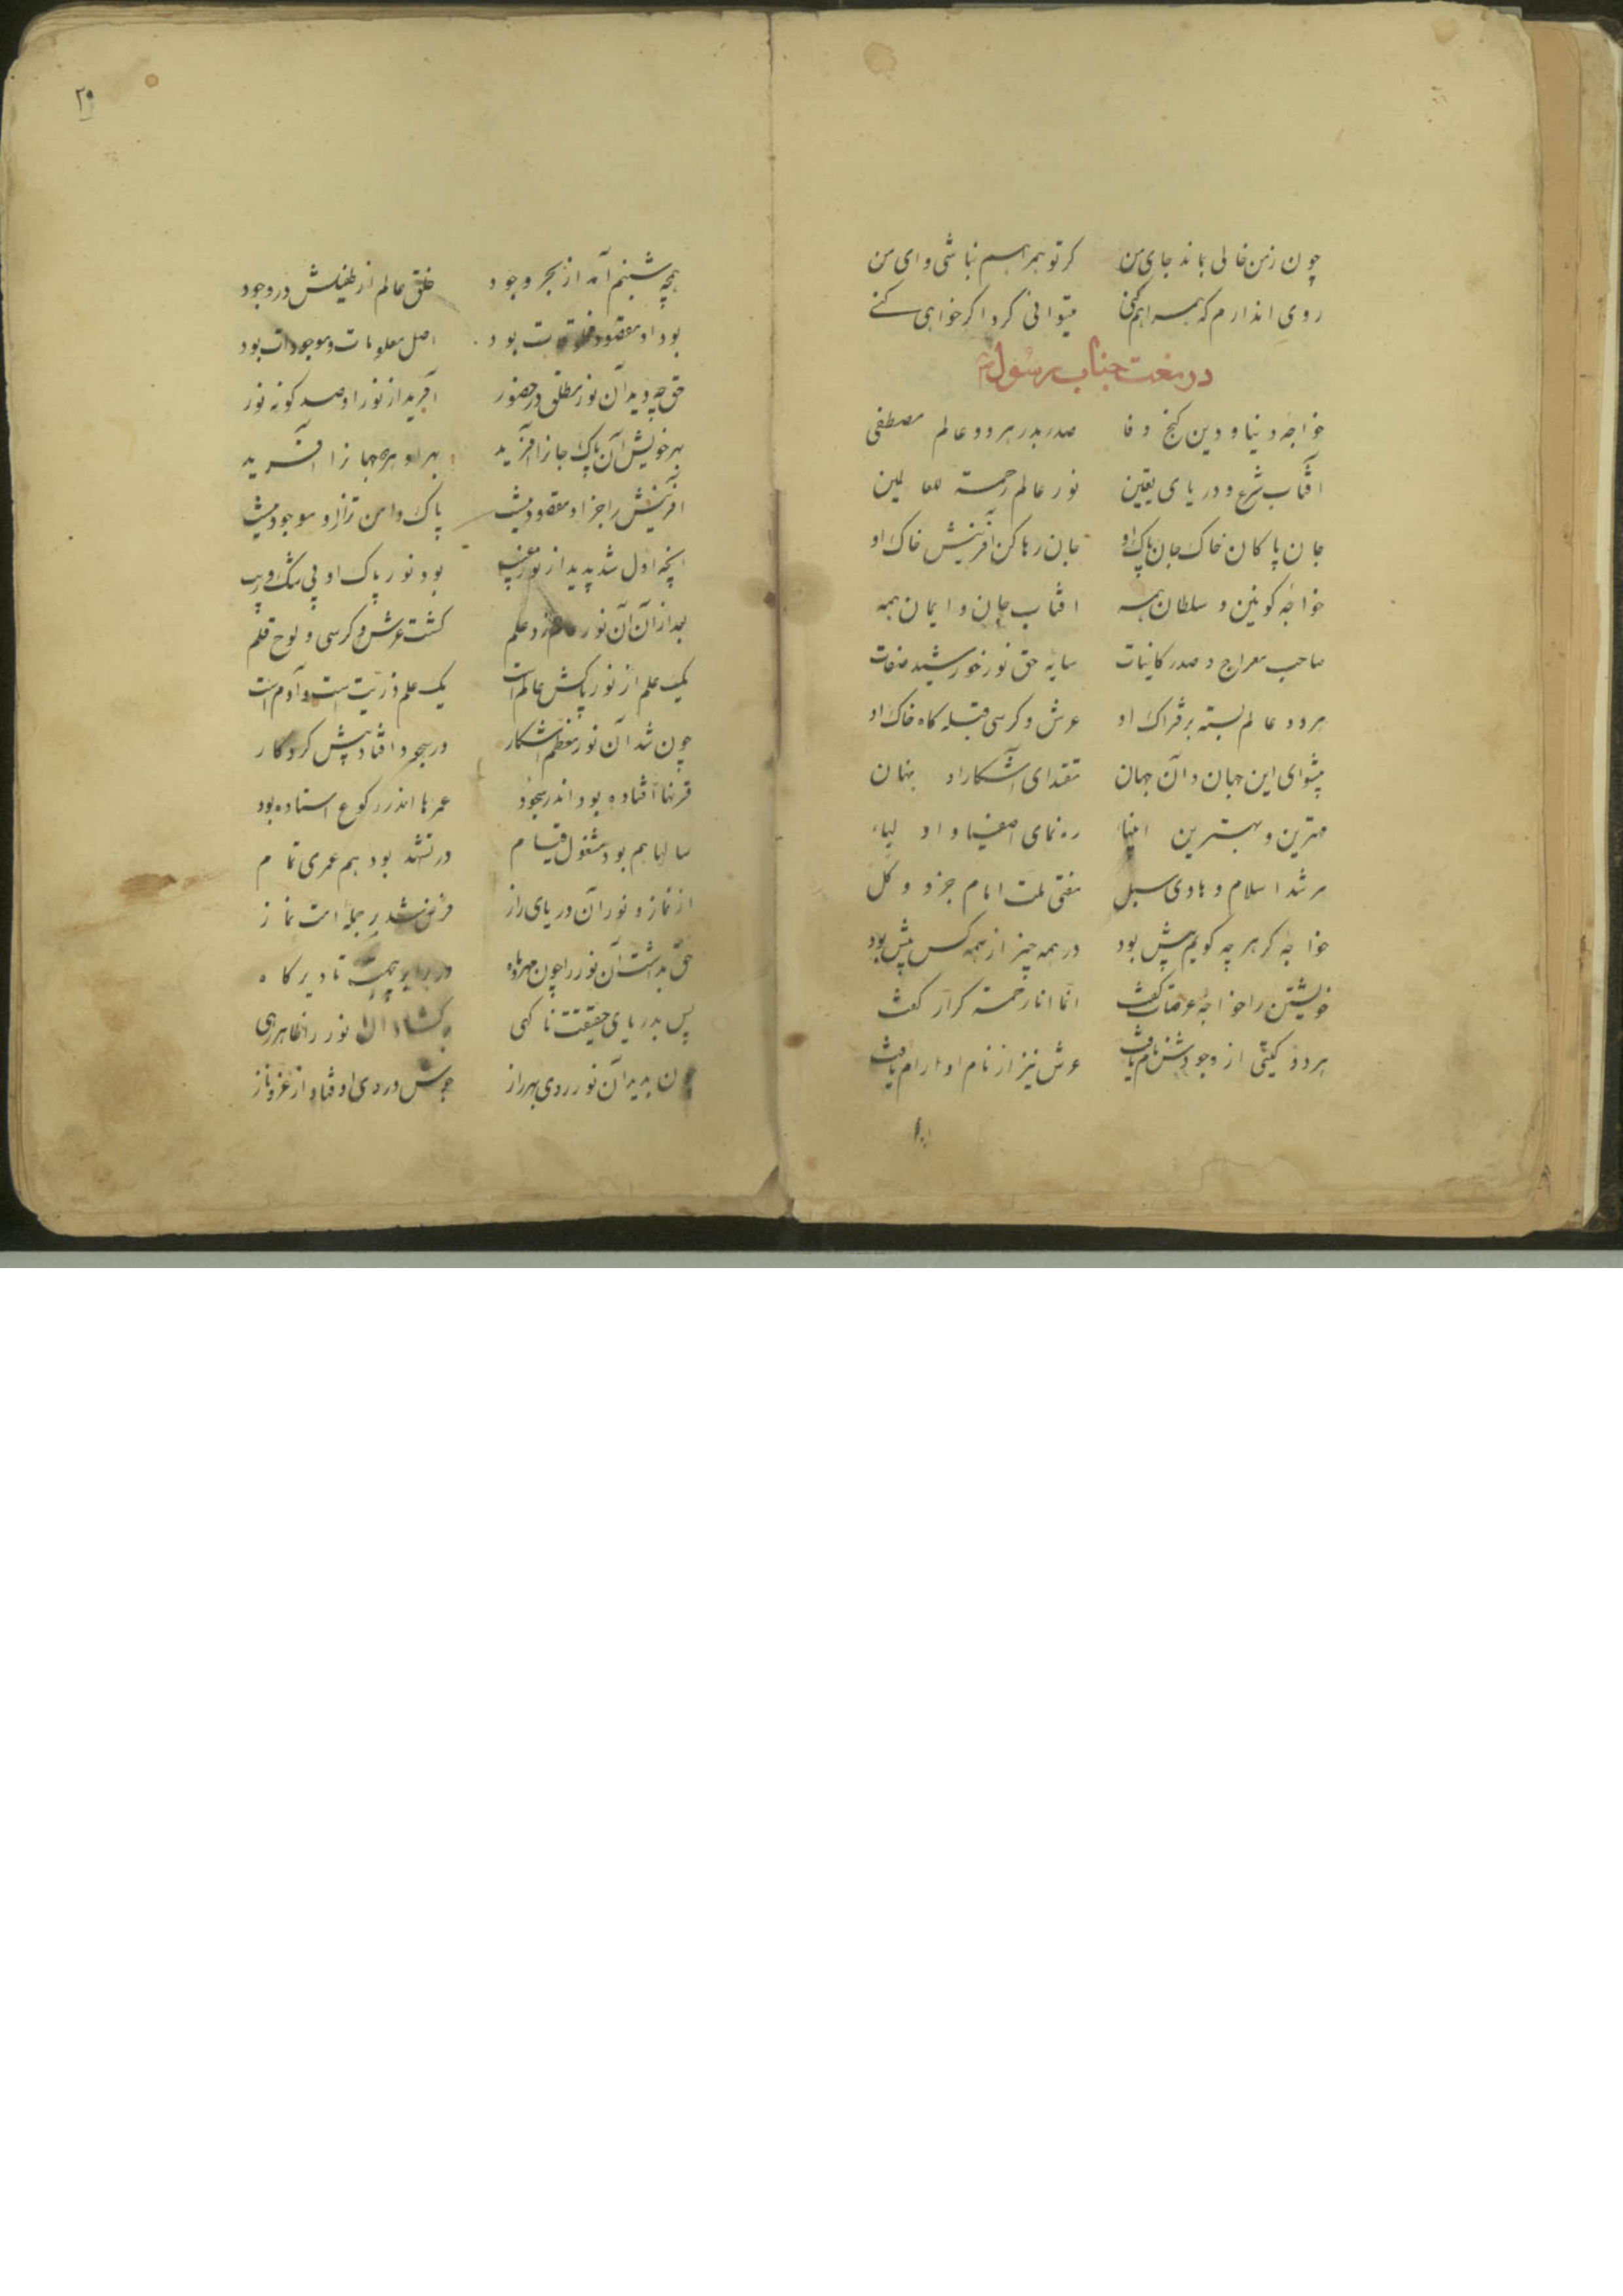 چون زمن خالی بماند جای من کر تو همراهم نباشی وای من
روی اندارم که همراهم کنی میتوانی کرد اکر خواهی کنے
در نعت جناب رسول
خواجه دنیا و دین کنج وفا صدر بدر هر دو عالم مصطفی
افتاب شرع و دریای یقین نور عالم رحمة للعالمین
جان پاکان خاک جان پاک او جان رها کن آفرینش خاک او
خواجه کونین و سلطان همه افتاب جان و ایمان همه
صاحب معراج و صدر کاینات سایه حق نور خورشید صفات
هر دو عالم بسته بر فتراک او عرش و کرسی قبله کاه خاک او
پیشوای این جهان و آن جهان مقتدای آشکارا و نهان
مهترین و بهترین انبیاء ره نمای اصفیا و اولیاء
مرشد اسلام و هادی سبل مفتی ملت امام جزو و کل
خواجه کز هر چه کویم پیش بود در همه چیز از همه کس پیش بود
خویشتن را خواجه عرصات کفت انما انا رحمة کرار کفت
هر دو کیتی از وجودش نام یافت عرش نیز از نام او ارام یافت
۲۰
همچه شبنم آمد از بحر وجود خلق عالم از طفیلش در وجود
بود او مقصود مخلوقات بود اصل معلومات و موجودات بود
حق چه دید آن نور مطلق در حضور آفرید از نور او صد کونه نور
بهر خویش آن پاک جانرا آفرید بهر او جهانرا آفرید
آفرینش را جز او مقصود نیست پاک دامن تر ازو موجود نیست
آنچه اول شد پدید از غیب بود نور پاک او بی شک و ریب
بعد از آن آن نور زد علم کشت عرش و کرسی و لوح قلم
یک علم از نور پاکش عالم است یک علم ذریت است و آدم است
چون شد آن نور معظم آشکار در سجود افتاد پیش کردکار
قرنها افتاده بود اندر سجود عمرها اندر رکوع استاده بود
سالها هم بود مشغول قیام در تشهد بود هم عمری تمام
از نماز و نور آن دریای راز فرض شد بر جمله امت نماز
حق بداشت آن نور را چون مهر و ماه در برابر تا دیر کاه
پس بدریای حقیقت ناکهی برکشاد آن نور را ظاهر رهی
چون بدید آن نور روی بهر راز جوش در وی اوفتاد از عز و ناز